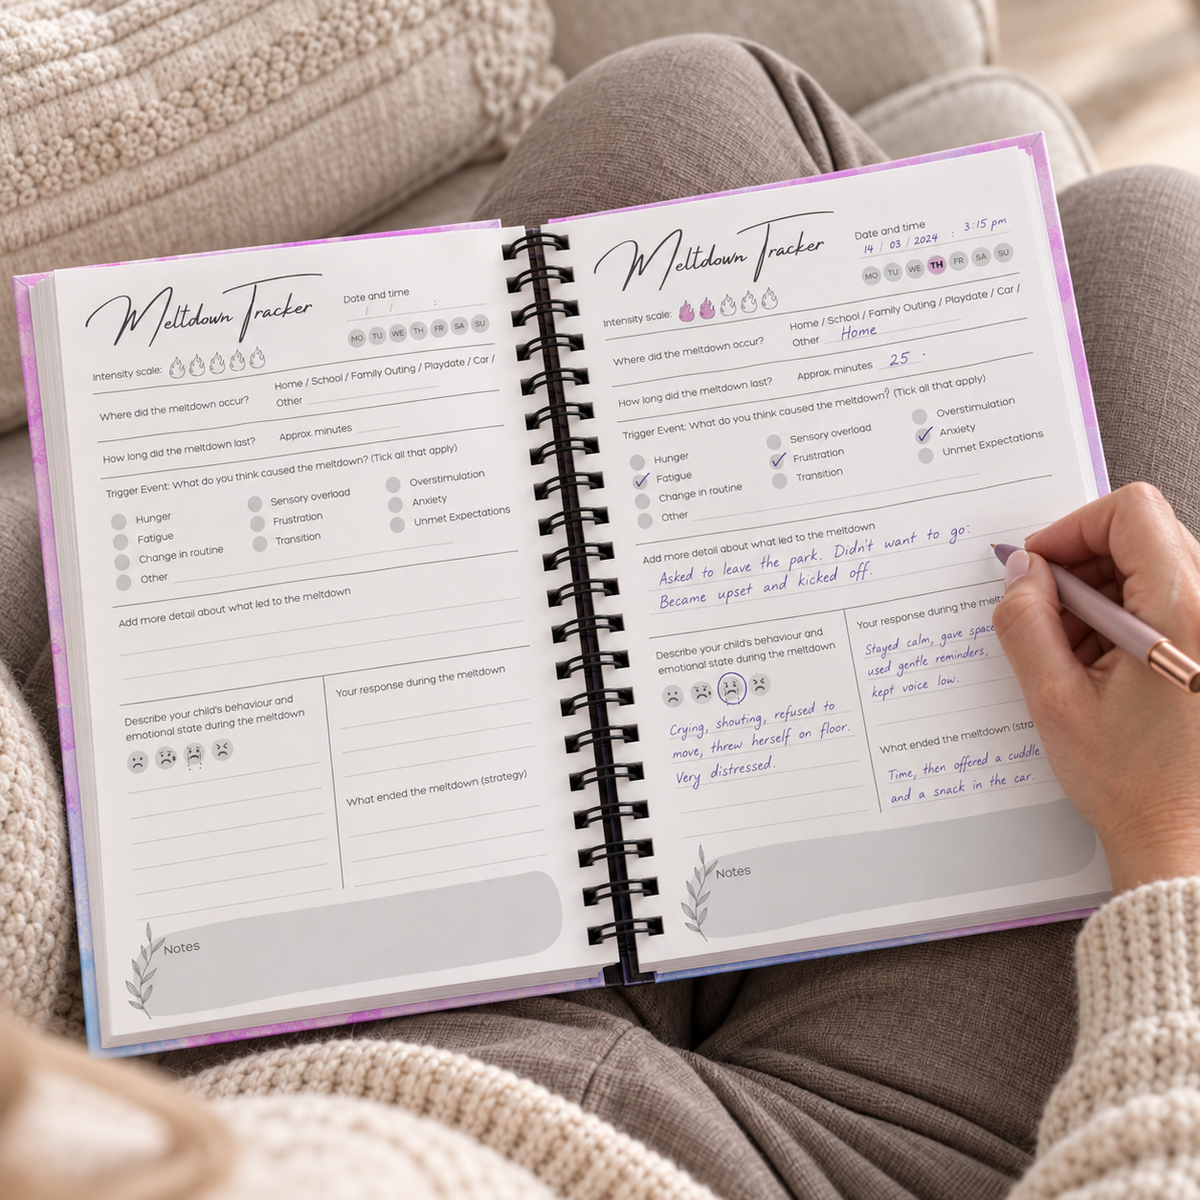 Meltdown Tracker
Date and time
/ / :
MO TU WE TH FR SA SU
Intensity scale:
Where did the meltdown occur?
Home / School / Family Outing / Playdate / Car /
Other
How long did the meltdown last?
Approx. minutes
Trigger Event: What do you think caused the meltdown? (Tick all that apply)
Hunger
Fatigue
Change in routine
Other
Sensory overload
Frustration
Transition
Overstimulation
Anxiety
Unmet Expectations
Add more detail about what led to the meltdown
Describe your child's behaviour and
emotional state during the meltdown
Your response during the meltdown
What ended the meltdown (strategy)
Notes
Meltdown Tracker
Date and time
14 / 03 / 2024 : 3:15 pm
MO TU WE TH FR SA SU
Intensity scale:
Where did the meltdown occur?
Home / School / Family Outing / Playdate / Car /
Other Home
How long did the meltdown last?
Approx. minutes 25
Trigger Event: What do you think caused the meltdown? (Tick all that apply)
Hunger
Fatigue
Change in routine
Other
Sensory overload
Frustration
Transition
Overstimulation
Anxiety
Unmet Expectations
Add more detail about what led to the meltdown
Asked to leave the park. Didn't want to go:
Became upset and kicked off.
Describe your child's behaviour and
emotional state during the meltdown
Crying, shouting, refused to
move, threw herself on floor.
Very distressed.
Your response during the
Stayed calm, gave space
used gentle reminders,
kept voice low.
What ended the meltdown
Time, then offered a cuddle
and a snack in the car.
Notes